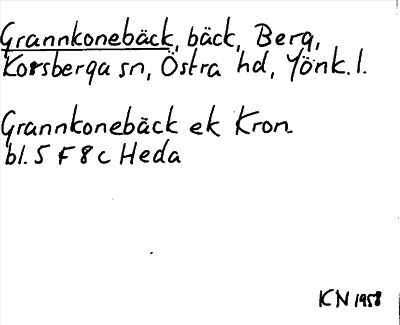 Grannkonebäck, bäck, Berg,
Korsberga sn, Östra hd, Jönk. l.
Grannkonebäck ek Kron.
bl. 5 F 8 c Heda
KN 1958